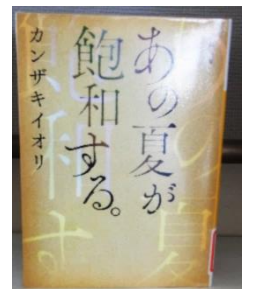 あの夏が
飽和する。
カンザキイオリ